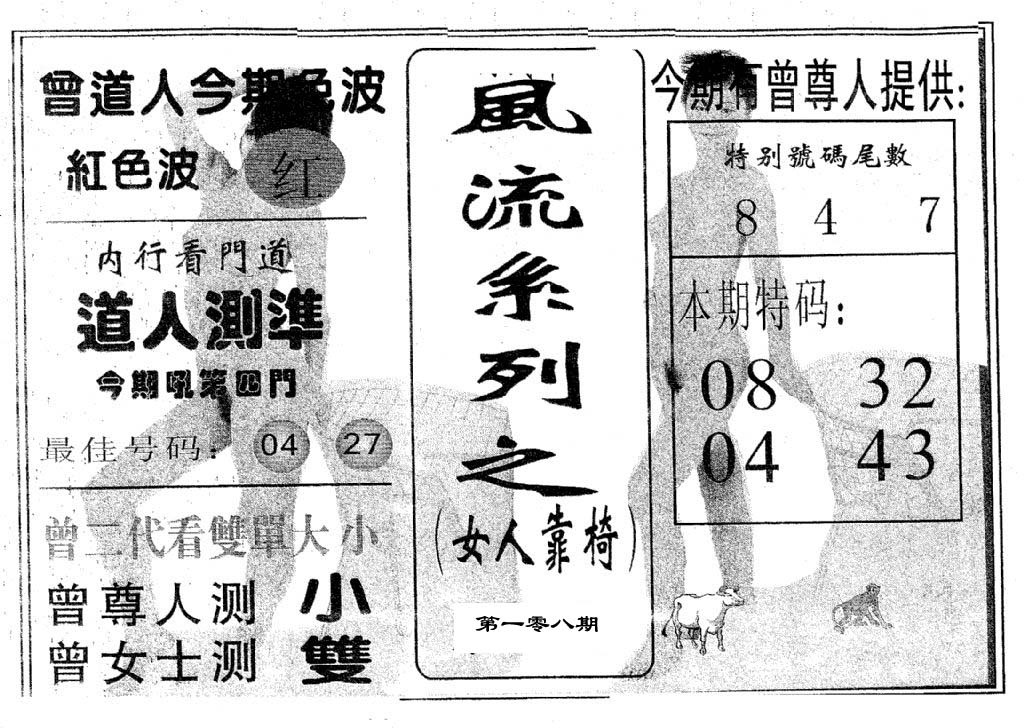 曾道人今期色波
紅色波 红
内行看門道
道人測準
今期吼第四門
最佳号码： 04 27
曾二代看雙單大小
曾尊人测 小
曾女士测 雙
風流系列之
（女人靠椅）
第一零八期
今期有曾尊人提供：
特别號碼尾數
8 4 7
本期特码：
08 32
04 43